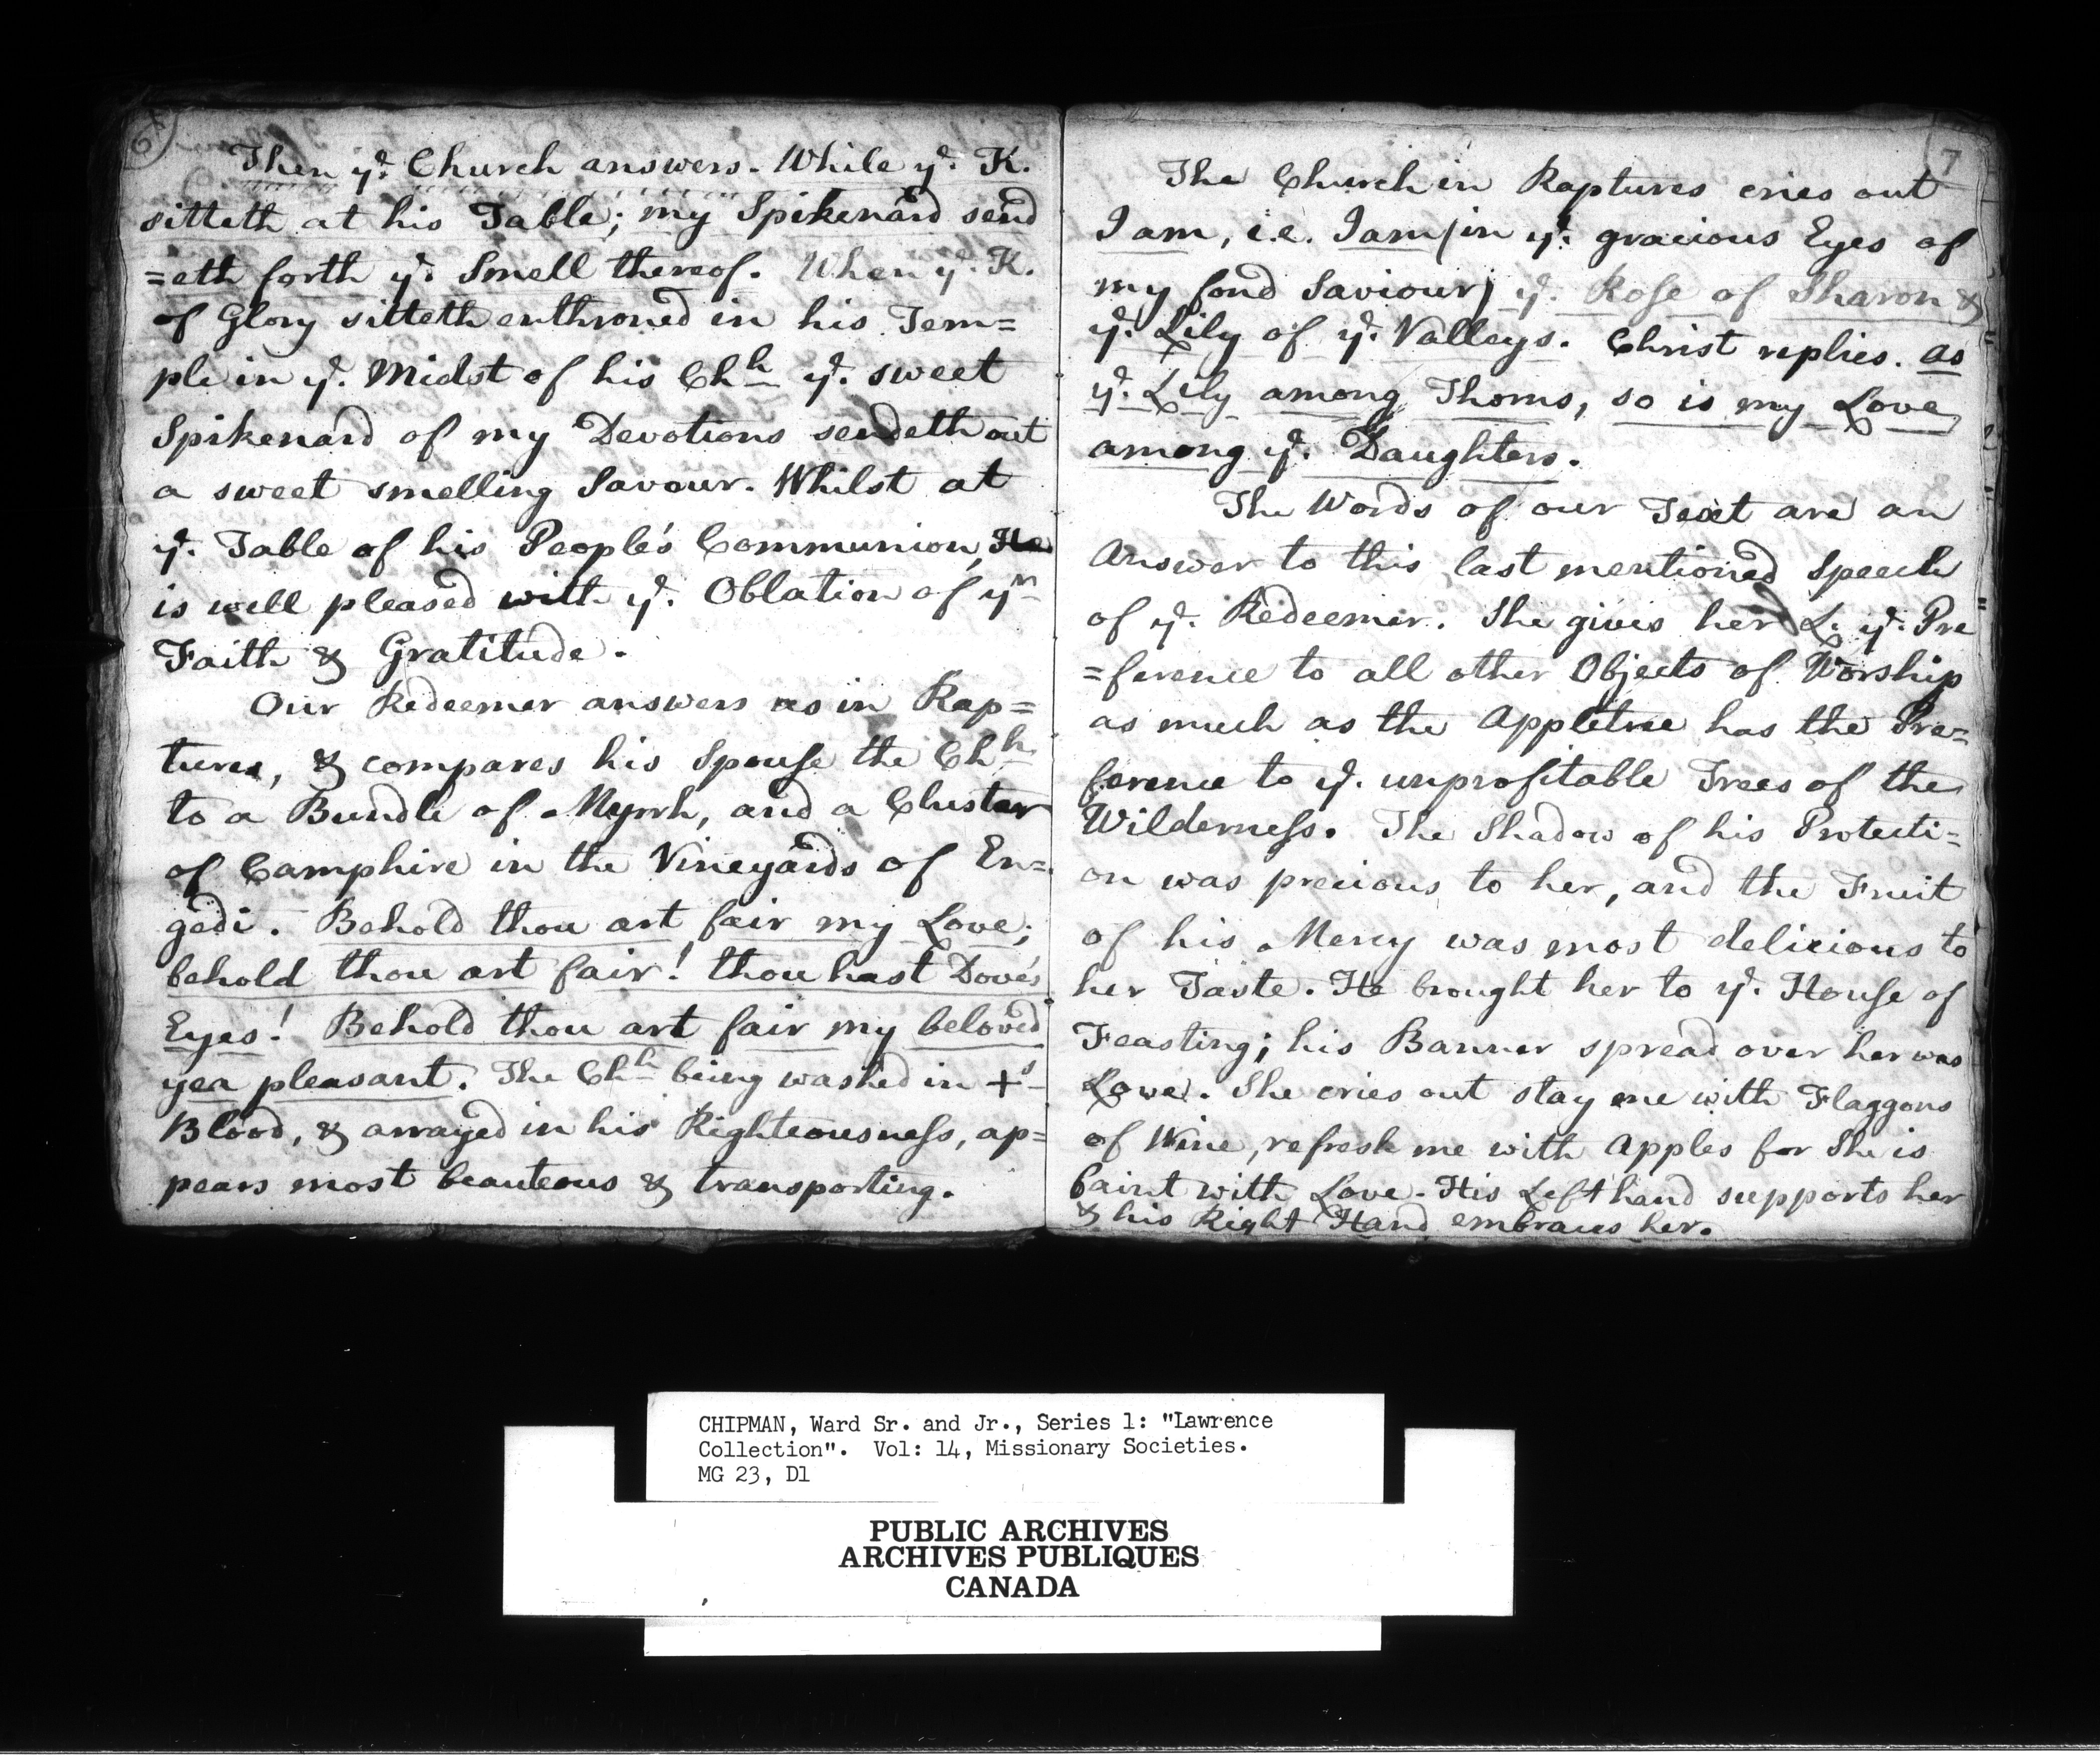 6
Then yᵉ. Church answers. While yᵉ. K.
sitteth at his Table; my Spikenard send
=eth forth yᵉ. Smell thereof. When yᵉ. K.
of Glory sitteth enthroned in his Tem=
ple in yᵉ. Midst of his Chʰ yᵉ. sweet
Spikenard of my Devotions sendeth out
a sweet smelling Savour. Whilst at
yᵉ. Table of his People's Communion, He
is well pleased with yᵉ. Oblation of yᵐ
Faith & Gratitude.
Our Redeemer answers as in Rap=
tures, & compares his Spouse the Chʰ
to a Bundle of Myrrh, and a Cluster
of Camphire in the Vineyards of En=
gedi. Behold thou art fair my Love;
behold thou art fair! thou hast Dove's
Eyes! Behold thou art fair my beloved
yea pleasant. The Chʰ being washed in +ˢ
Blood, & arrayed in his Righteousness, ap=
pears most beauteous & transporting.
7
The Church in Raptures cries out
I am, i.e. I am (in yᵉ. gracious Eyes of
my fond Saviour) yᵉ. Rose of Sharon &
yᵉ. Lily of yᵉ. Valleys. Christ replies. as
yᵉ. Lily among Thorns, so is my Love
among yᵉ. Daughters.
The Words of our Text are an
Answer to this last mentioned Speech
of yᵉ. Redeemer. She gives her L. yᵉ. Pre
=ference to all other Objects of Worship
as much as the Appletree has the Pre=
ference to yᵉ. unprofitable Trees of the
Wilderness. The Shadow of his Protecti=
on was precious to her, and the Fruit
of his Mercy was most delicious to
her Taste. He brought her to yᵉ. House of
Feasting; his Banner spread over her was
Love. She cries out stay me with Flaggons
of Wine, refresh me with Apples for She is
faint with Love. His Left hand supports her
& his Right Hand embraces her.
CHIPMAN, Ward Sr. and Jr., Series 1: "Lawrence
Collection". Vol: 14, Missionary Societies.
MG 23, D1
PUBLIC ARCHIVES
ARCHIVES PUBLIQUES
CANADA